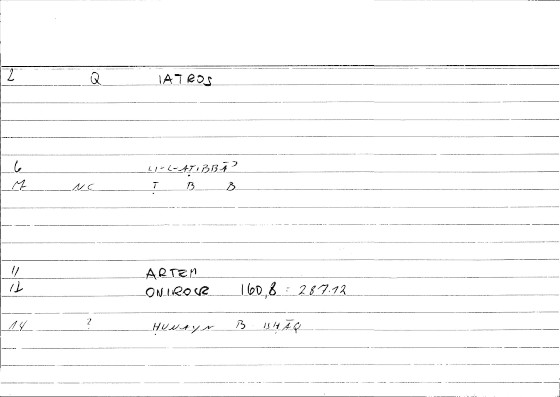 2 Q IATROS
6 LI-L-AṬIBBĀʾ
M NC Ṭ B B
11 ARTEM
12 ONIROCR 160,8 : 287.12
14 ? ḤUNAYN B ISḤĀQ